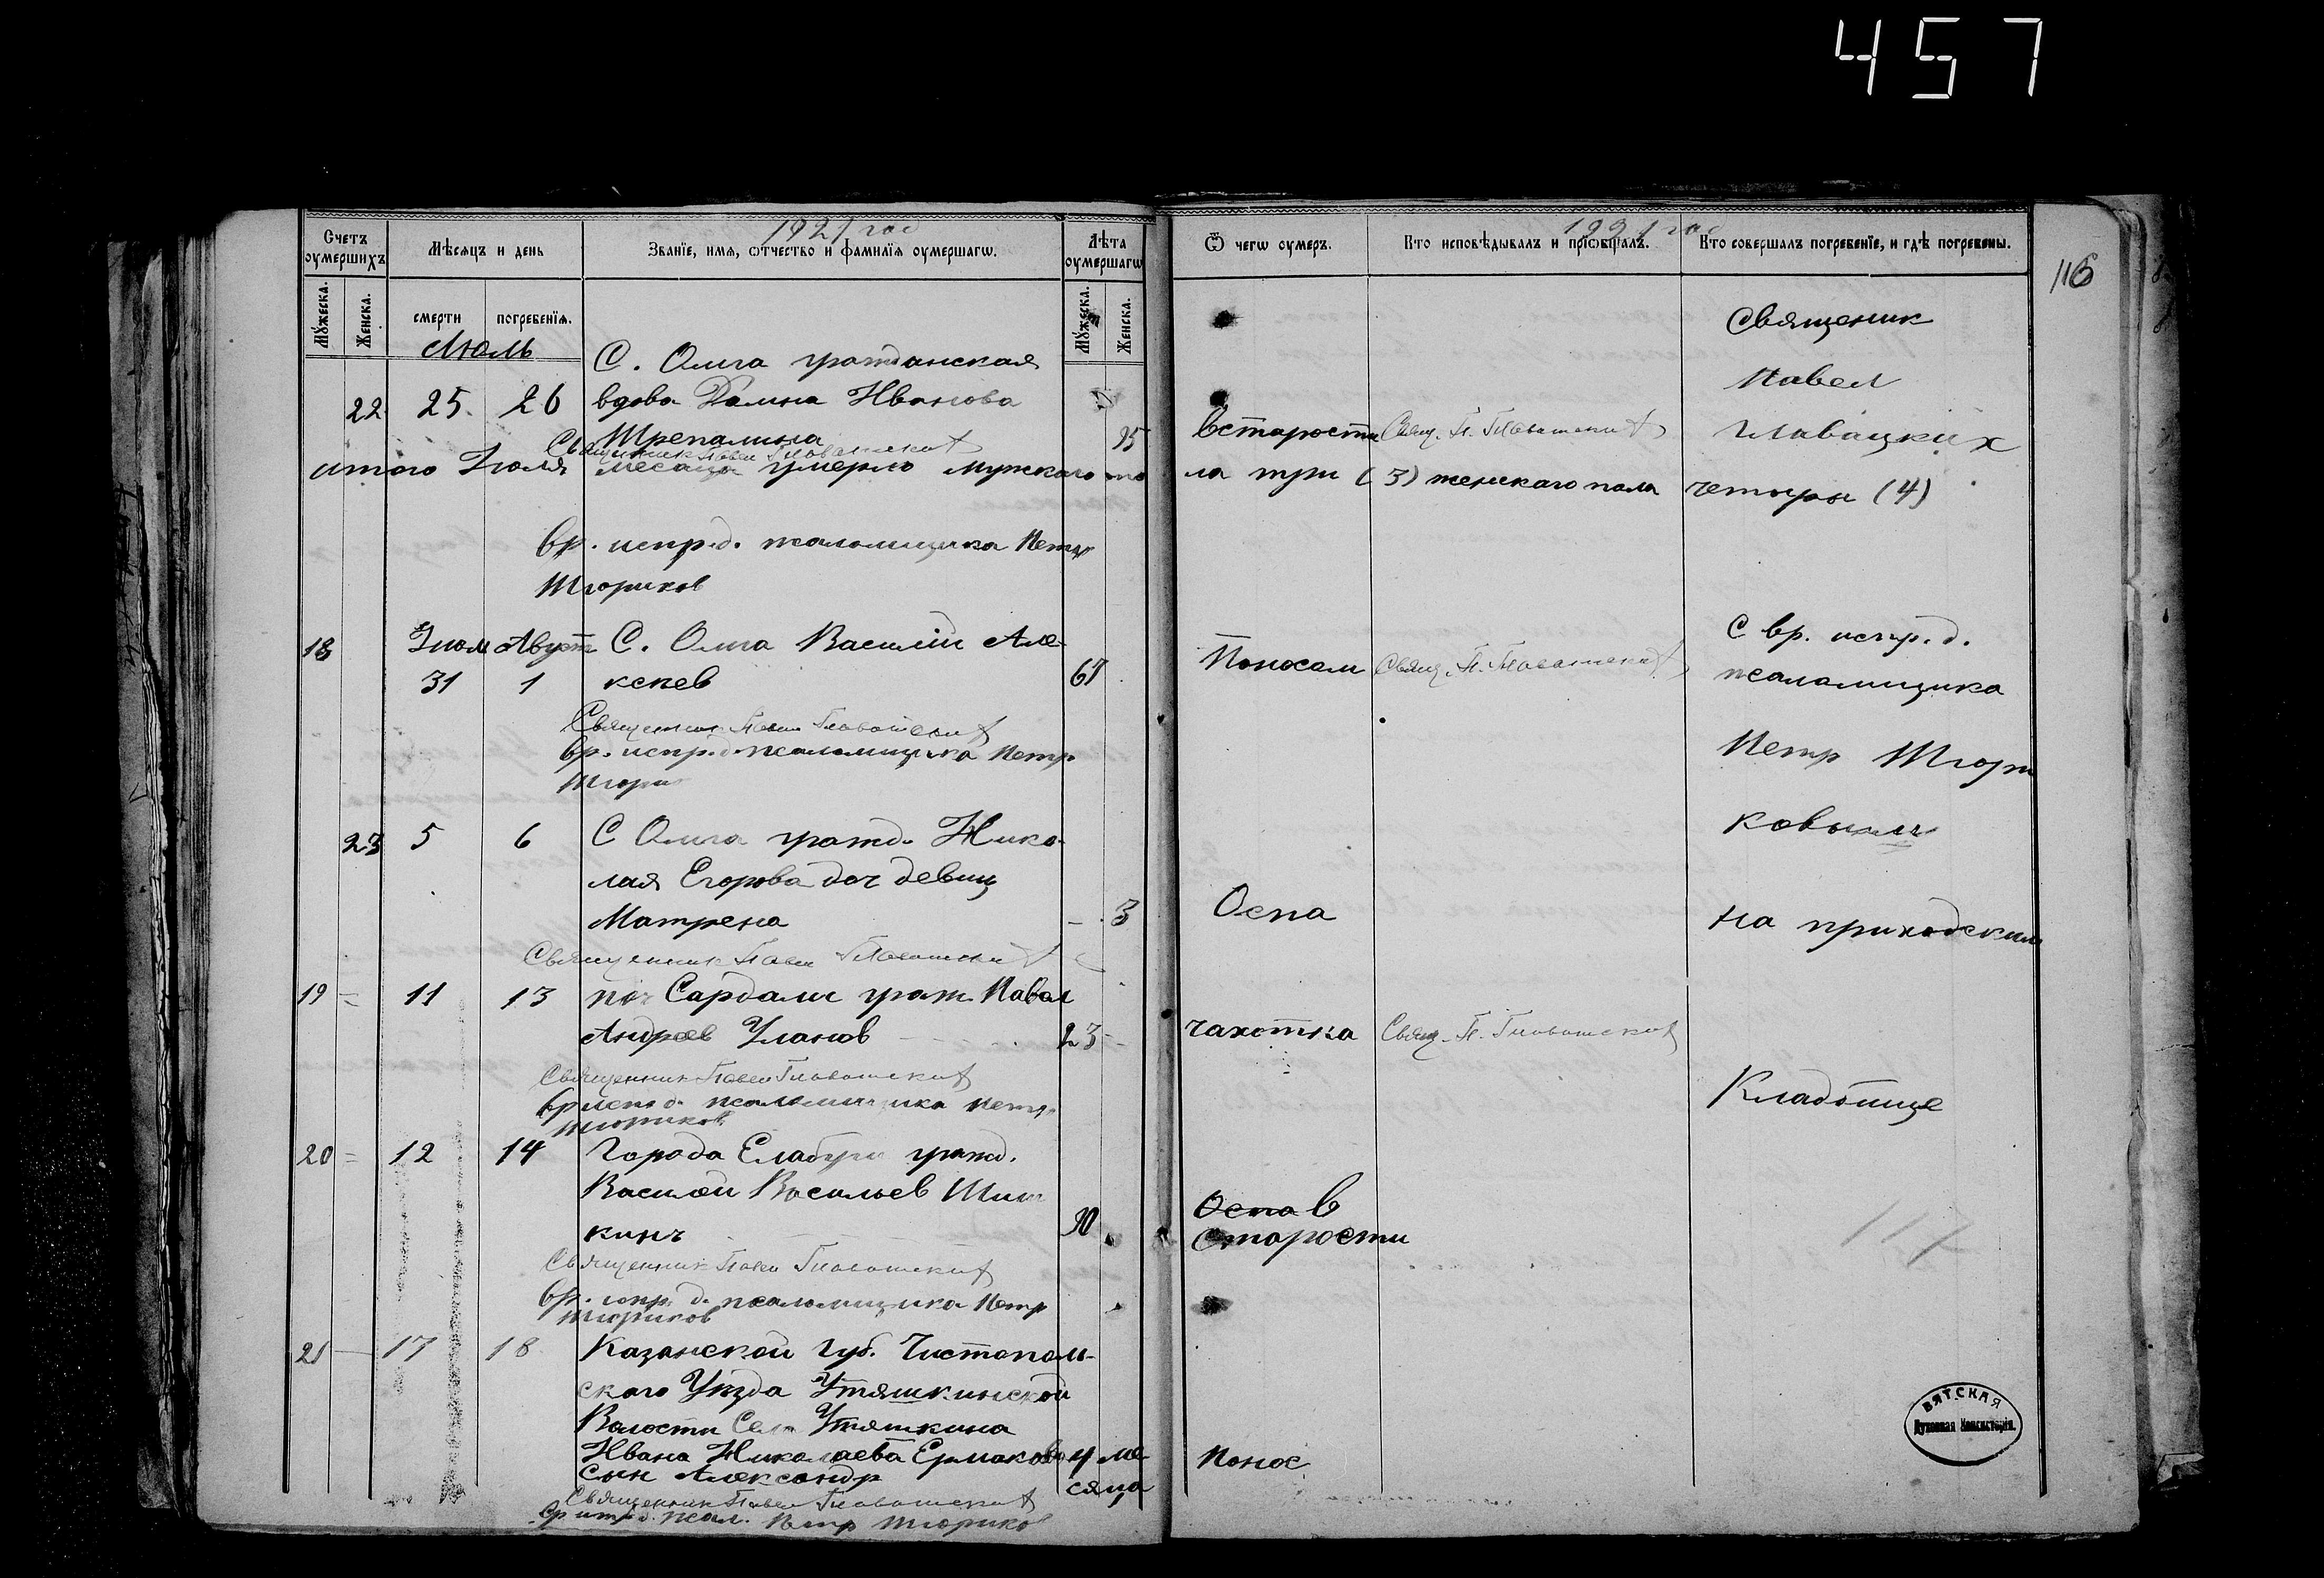 457
1921 год
1921 год
Счетъ оумершихъ
Мѣсяцъ и день
Званїе, имя, ѿтчество и фамилїя оумершагѡ.
Лѣта оумершагѡ
Ѿ чегѡ оумеръ.
Кто исповѣдывалъ и прїѡбщалъ.
Кто совершалъ погребенїе, и гдѣ погребены.
116
Мꙋжеска.
Женска.
смерти
погребенїя.
Мꙋжеска.
Женска.
Июль
Священик
С. Ольга гражданская
Павел
22 25. 26 вдова Иванова
Трепалина 95 В старости Свящ. П. Главатских Главацких
Священник Павел Главатских
итого Июля месяца умерло мужкаго по ла три (3) женскаго пола четыры (4)
вр. испр.д. псаломщика Петр
Тюриков
18 Июл Август С. Олга Василий Але-
31 1 ксеев 67 Поносом Свящ. П. Главатских
С вр. испр. д.
псаломщика
Священник Павел Главатских
вр. испр.д. псаломщика Петр
Тюрик
Петр Тюри
ковым
23 5 6 С Олга гражд. Нико-
лая Егорова доч девиц
Матрена - 3 Оспа на приходским
Священник Павел Главатских
19 = 11 13 поч Сардали граж. Павел
Андреев Уланов 23 чахотка Свящ. П. Главатских
Священник Павел Главатских
вр испр д. псаломщика Петр
Тюриков
Кладбище
20 = 12 14 Города Елабуги гражд.
Василий Васильев Шиш
кинъ 90 Оспа в
Старости
Священник Павел Главатских
вр. испр. д. псаломщика Петр
Тюриков
117
21 — 17 18 Казанской Губ. Чистополь-
ского Уезда Утяшкинской
Волости Села Утяшкина
Ивана Николаева Ермакова 4 ме- Понос
сын Александр сяца
Священник Павел Главатских
вр испр д. псал. Петр Тюриков
ВЯТСКАЯ
Духовная Консисторія.